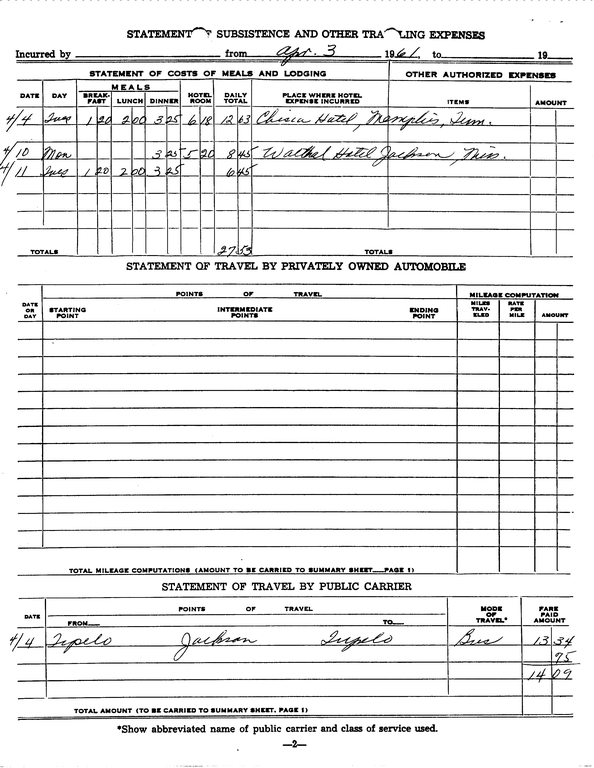 STATEMENT SUBSISTENCE AND OTHER TRA LING EXPENSES
Incurred by from Apr. 3 1961, to 19
STATEMENT OF COSTS OF MEALS AND LODGING OTHER AUTHORIZED EXPENSES
DATE DAY MEALS BREAK-FAST LUNCH DINNER HOTEL ROOM DAILY TOTAL PLACE WHERE HOTEL EXPENSE INCURRED ITEMS AMOUNT
4/4 Tues 1 20 2 00 3 25 6 18 12 63 Chisca Hotel, Memphis, Tenn.
4/10 Mon 3 25 5 20 8 45 Walthal Hotel Jackson, Miss.
4/11 Tues 1 20 2 00 3 25 6 45
TOTALS 27 53 TOTALS
STATEMENT OF TRAVEL BY PRIVATELY OWNED AUTOMOBILE
POINTS OF TRAVEL MILEAGE COMPUTATION
DATE OR DAY STARTING POINT INTERMEDIATE POINTS ENDING POINT MILES TRAV-ELED RATE PER MILE AMOUNT
TOTAL MILEAGE COMPUTATIONS (AMOUNT TO BE CARRIED TO SUMMARY SHEET PAGE 1)
STATEMENT OF TRAVEL BY PUBLIC CARRIER
DATE POINTS OF TRAVEL FROM TO MODE OF TRAVEL* FARE PAID AMOUNT
4/4 Tupelo Jackson Tupelo Bus 13 34
75
14 09
TOTAL AMOUNT (TO BE CARRIED TO SUMMARY SHEET, PAGE 1)
*Show abbreviated name of public carrier and class of service used.
—2—